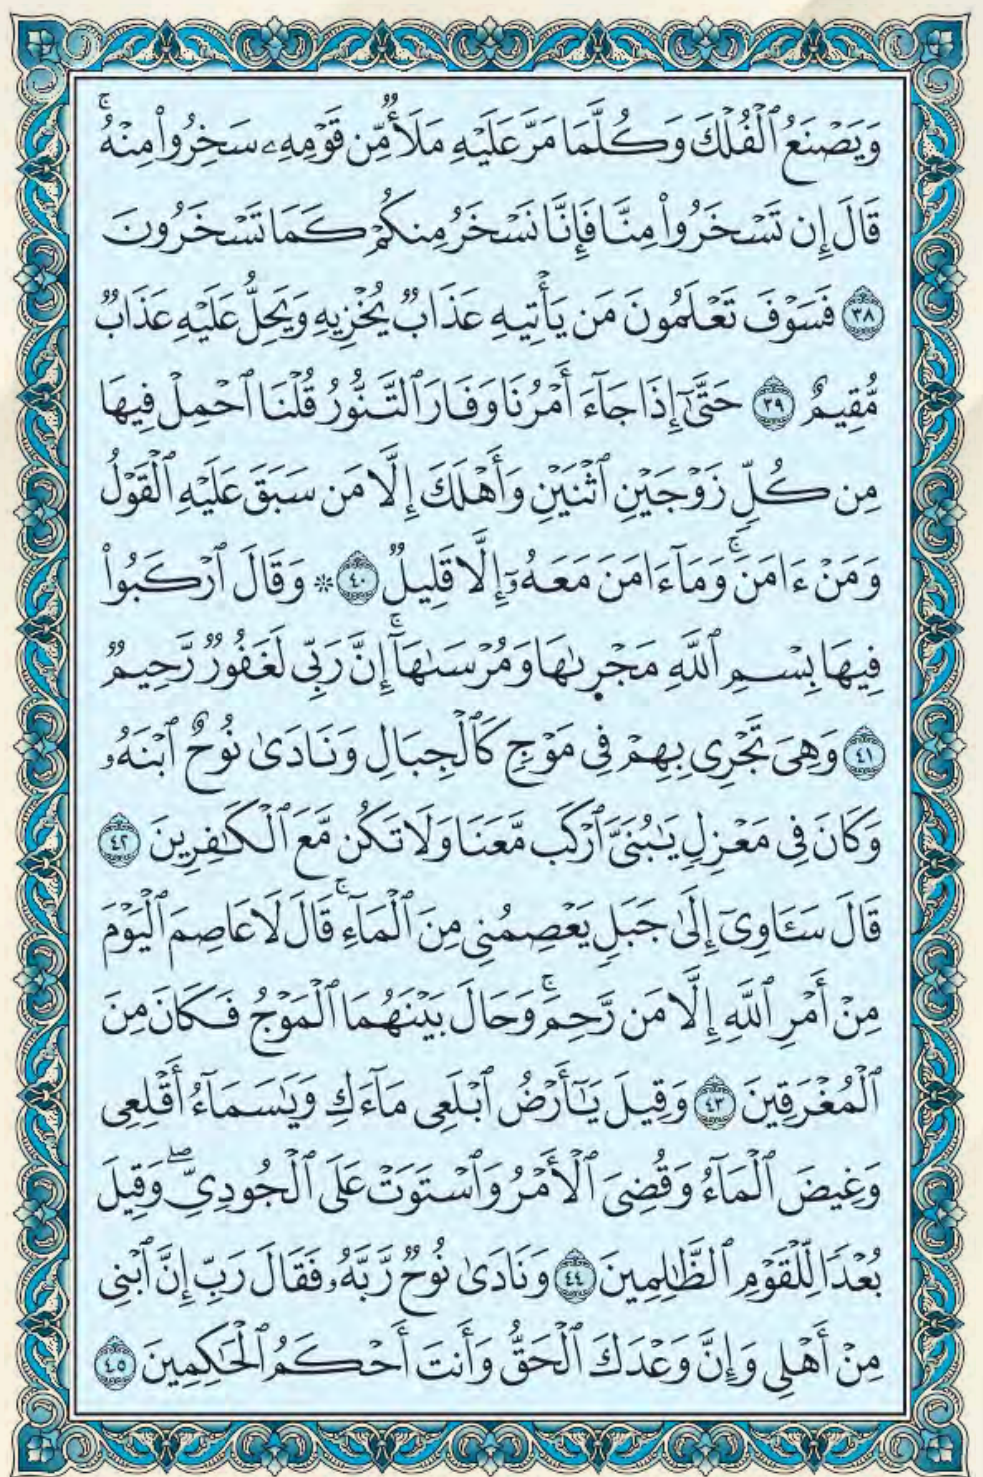 وَيَصۡنَعُ ٱلۡفُلۡكَ وَكُلَّمَا مَرَّ عَلَيۡهِ مَلَأٞ مِّن قَوۡمِهِۦ سَخِرُواْ مِنۡهُۚ
قَالَ إِن تَسۡخَرُواْ مِنَّا فَإِنَّا نَسۡخَرُ مِنكُمۡ كَمَا تَسۡخَرُونَ
٣٨ فَسَوۡفَ تَعۡلَمُونَ مَن يَأۡتِيهِ عَذَابٞ يُخۡزِيهِ وَيَحِلُّ عَلَيۡهِ عَذَابٞ
مُّقِيمٌ ٣٩ حَتَّىٰٓ إِذَا جَآءَ أَمۡرُنَا وَفَارَ ٱلتَّنُّورُ قُلۡنَا ٱحۡمِلۡ فِيهَا
مِن كُلّٖ زَوۡجَيۡنِ ٱثۡنَيۡنِ وَأَهۡلَكَ إِلَّا مَن سَبَقَ عَلَيۡهِ ٱلۡقَوۡلُ
وَمَنۡ ءَامَنَۚ وَمَآ ءَامَنَ مَعَهُۥٓ إِلَّا قَلِيلٞ ٤٠ ۞ وَقَالَ ٱرۡكَبُواْ
فِيهَا بِسۡمِ ٱللَّهِ مَجۡرٜىٰهَا وَمُرۡسَىٰهَآۚ إِنَّ رَبِّي لَغَفُورٞ رَّحِيمٞ
٤١ وَهِيَ تَجۡرِي بِهِمۡ فِي مَوۡجٖ كَٱلۡجِبَالِ وَنَادَىٰ نُوحٌ ٱبۡنَهُۥ
وَكَانَ فِي مَعۡزِلٖ يَٰبُنَيَّ ٱرۡكَب مَّعَنَا وَلَا تَكُن مَّعَ ٱلۡكَٰفِرِينَ ٤٢
قَالَ سَـَٔاوِيٓ إِلَىٰ جَبَلٖ يَعۡصِمُنِي مِنَ ٱلۡمَآءِۚ قَالَ لَا عَاصِمَ ٱلۡيَوۡمَ
مِنۡ أَمۡرِ ٱللَّهِ إِلَّا مَن رَّحِمَۚ وَحَالَ بَيۡنَهُمَا ٱلۡمَوۡجُ فَكَانَ مِنَ
ٱلۡمُغۡرَقِينَ ٤٣ وَقِيلَ يَٰٓأَرۡضُ ٱبۡلَعِي مَآءَكِ وَيَٰسَمَآءُ أَقۡلِعِي
وَغِيضَ ٱلۡمَآءُ وَقُضِيَ ٱلۡأَمۡرُ وَٱسۡتَوَتۡ عَلَى ٱلۡجُودِيِّۖ وَقِيلَ
بُعۡدٗا لِّلۡقَوۡمِ ٱلظَّٰلِمِينَ ٤٤ وَنَادَىٰ نُوحٞ رَّبَّهُۥ فَقَالَ رَبِّ إِنَّ ٱبۡنِي
مِنۡ أَهۡلِي وَإِنَّ وَعۡدَكَ ٱلۡحَقُّ وَأَنتَ أَحۡكَمُ ٱلۡحَٰكِمِينَ ٤٥